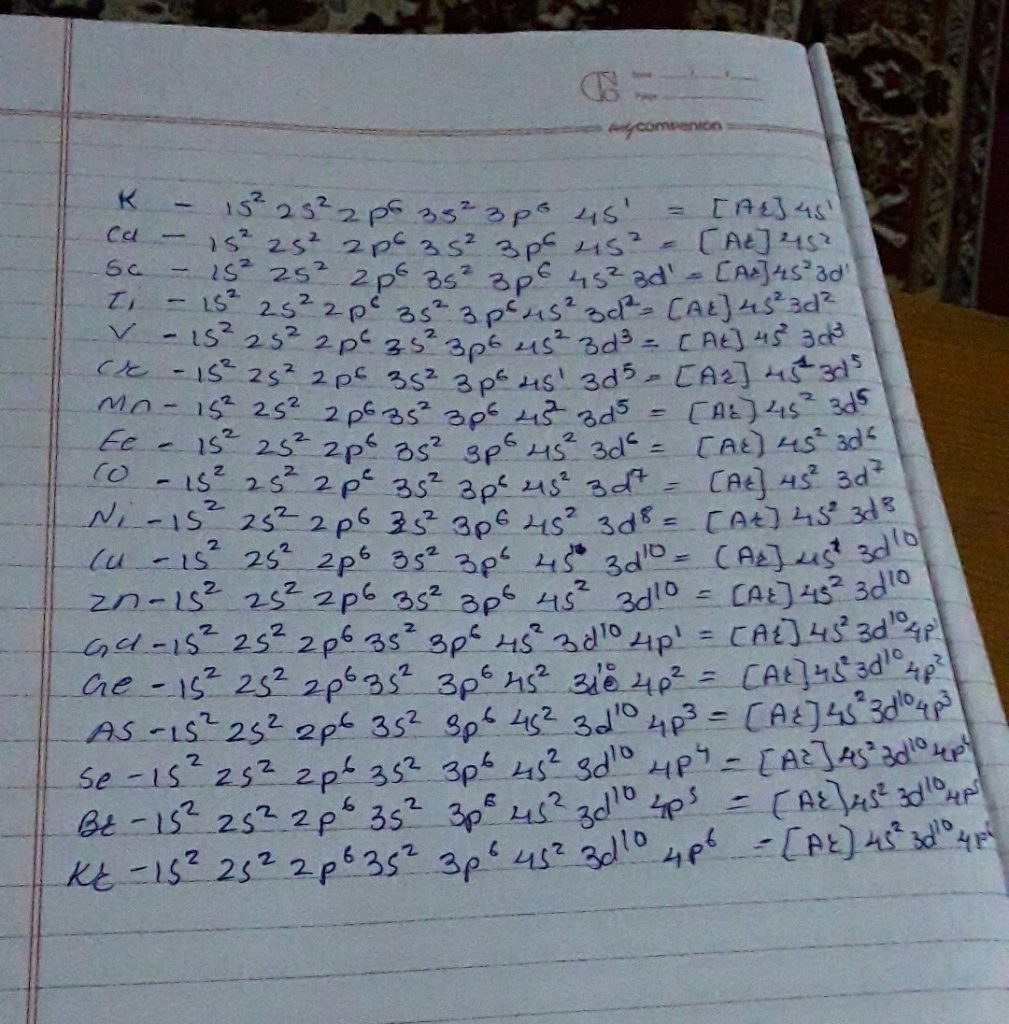 companion
K - 1s² 2s² 2p⁶ 3s² 3p⁶ 4s¹ = [Ar] 4s¹
Ca - 1s² 2s² 2p⁶ 3s² 3p⁶ 4s² = [Ar] 4s²
Sc - 1s² 2s² 2p⁶ 3s² 3p⁶ 4s² 3d¹ = [Ar] 4s² 3d¹
Ti - 1s² 2s² 2p⁶ 3s² 3p⁶ 4s² 3d² = [Ar] 4s² 3d²
V - 1s² 2s² 2p⁶ 3s² 3p⁶ 4s² 3d³ = [Ar] 4s² 3d³
Cr - 1s² 2s² 2p⁶ 3s² 3p⁶ 4s¹ 3d⁵ = [Ar] 4s¹ 3d⁵
Mn - 1s² 2s² 2p⁶ 3s² 3p⁶ 4s² 3d⁵ = [Ar] 4s² 3d⁵
Fe - 1s² 2s² 2p⁶ 3s² 3p⁶ 4s² 3d⁶ = [Ar] 4s² 3d⁶
CO - 1s² 2s² 2p⁶ 3s² 3p⁶ 4s² 3d⁷ = [Ar] 4s² 3d⁷
Ni - 1s² 2s² 2p⁶ 3s² 3p⁶ 4s² 3d⁸ = [Ar] 4s² 3d⁸
Cu - 1s² 2s² 2p⁶ 3s² 3p⁶ 4s¹ 3d¹⁰ = [Ar] 4s¹ 3d¹⁰
Zn - 1s² 2s² 2p⁶ 3s² 3p⁶ 4s² 3d¹⁰ = [Ar] 4s² 3d¹⁰
Ga - 1s² 2s² 2p⁶ 3s² 3p⁶ 4s² 3d¹⁰ 4p¹ = [Ar] 4s² 3d¹⁰ 4p¹
Ge - 1s² 2s² 2p⁶ 3s² 3p⁶ 4s² 3d¹⁰ 4p² = [Ar] 4s² 3d¹⁰ 4p²
AS - 1s² 2s² 2p⁶ 3s² 3p⁶ 4s² 3d¹⁰ 4p³ = [Ar] 4s² 3d¹⁰ 4p³
Se - 1s² 2s² 2p⁶ 3s² 3p⁶ 4s² 3d¹⁰ 4p⁴ = [Ar] 4s² 3d¹⁰ 4p⁴
Br - 1s² 2s² 2p⁶ 3s² 3p⁶ 4s² 3d¹⁰ 4p⁵ = [Ar] 4s² 3d¹⁰ 4p⁵
Kr - 1s² 2s² 2p⁶ 3s² 3p⁶ 4s² 3d¹⁰ 4p⁶ = [Ar] 4s² 3d¹⁰ 4p⁶